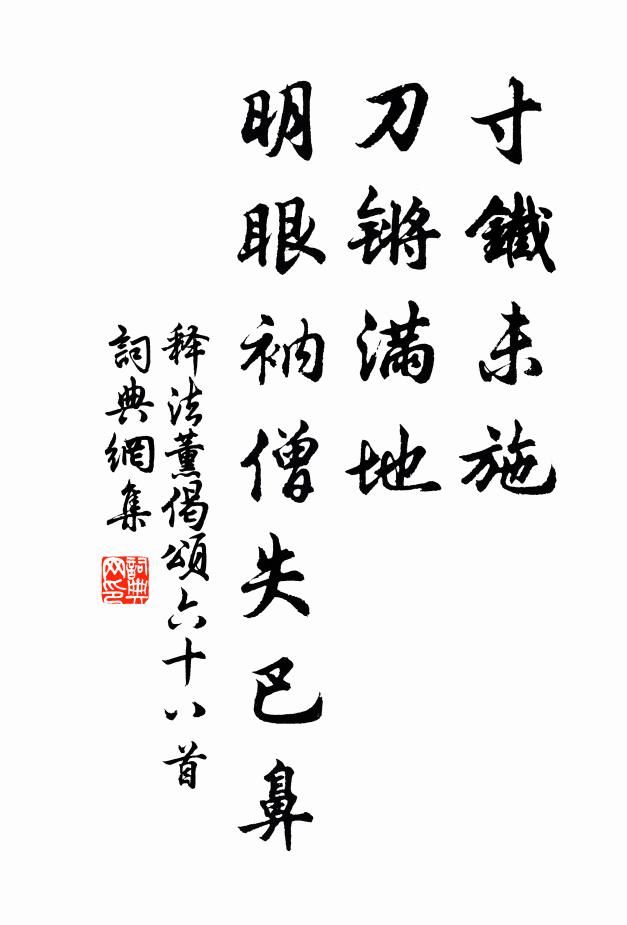 寸鐵未施
刀锵满地
明眼衲僧失巴鼻
释法薰偈頌六十八首
詞典網集
詞典网印